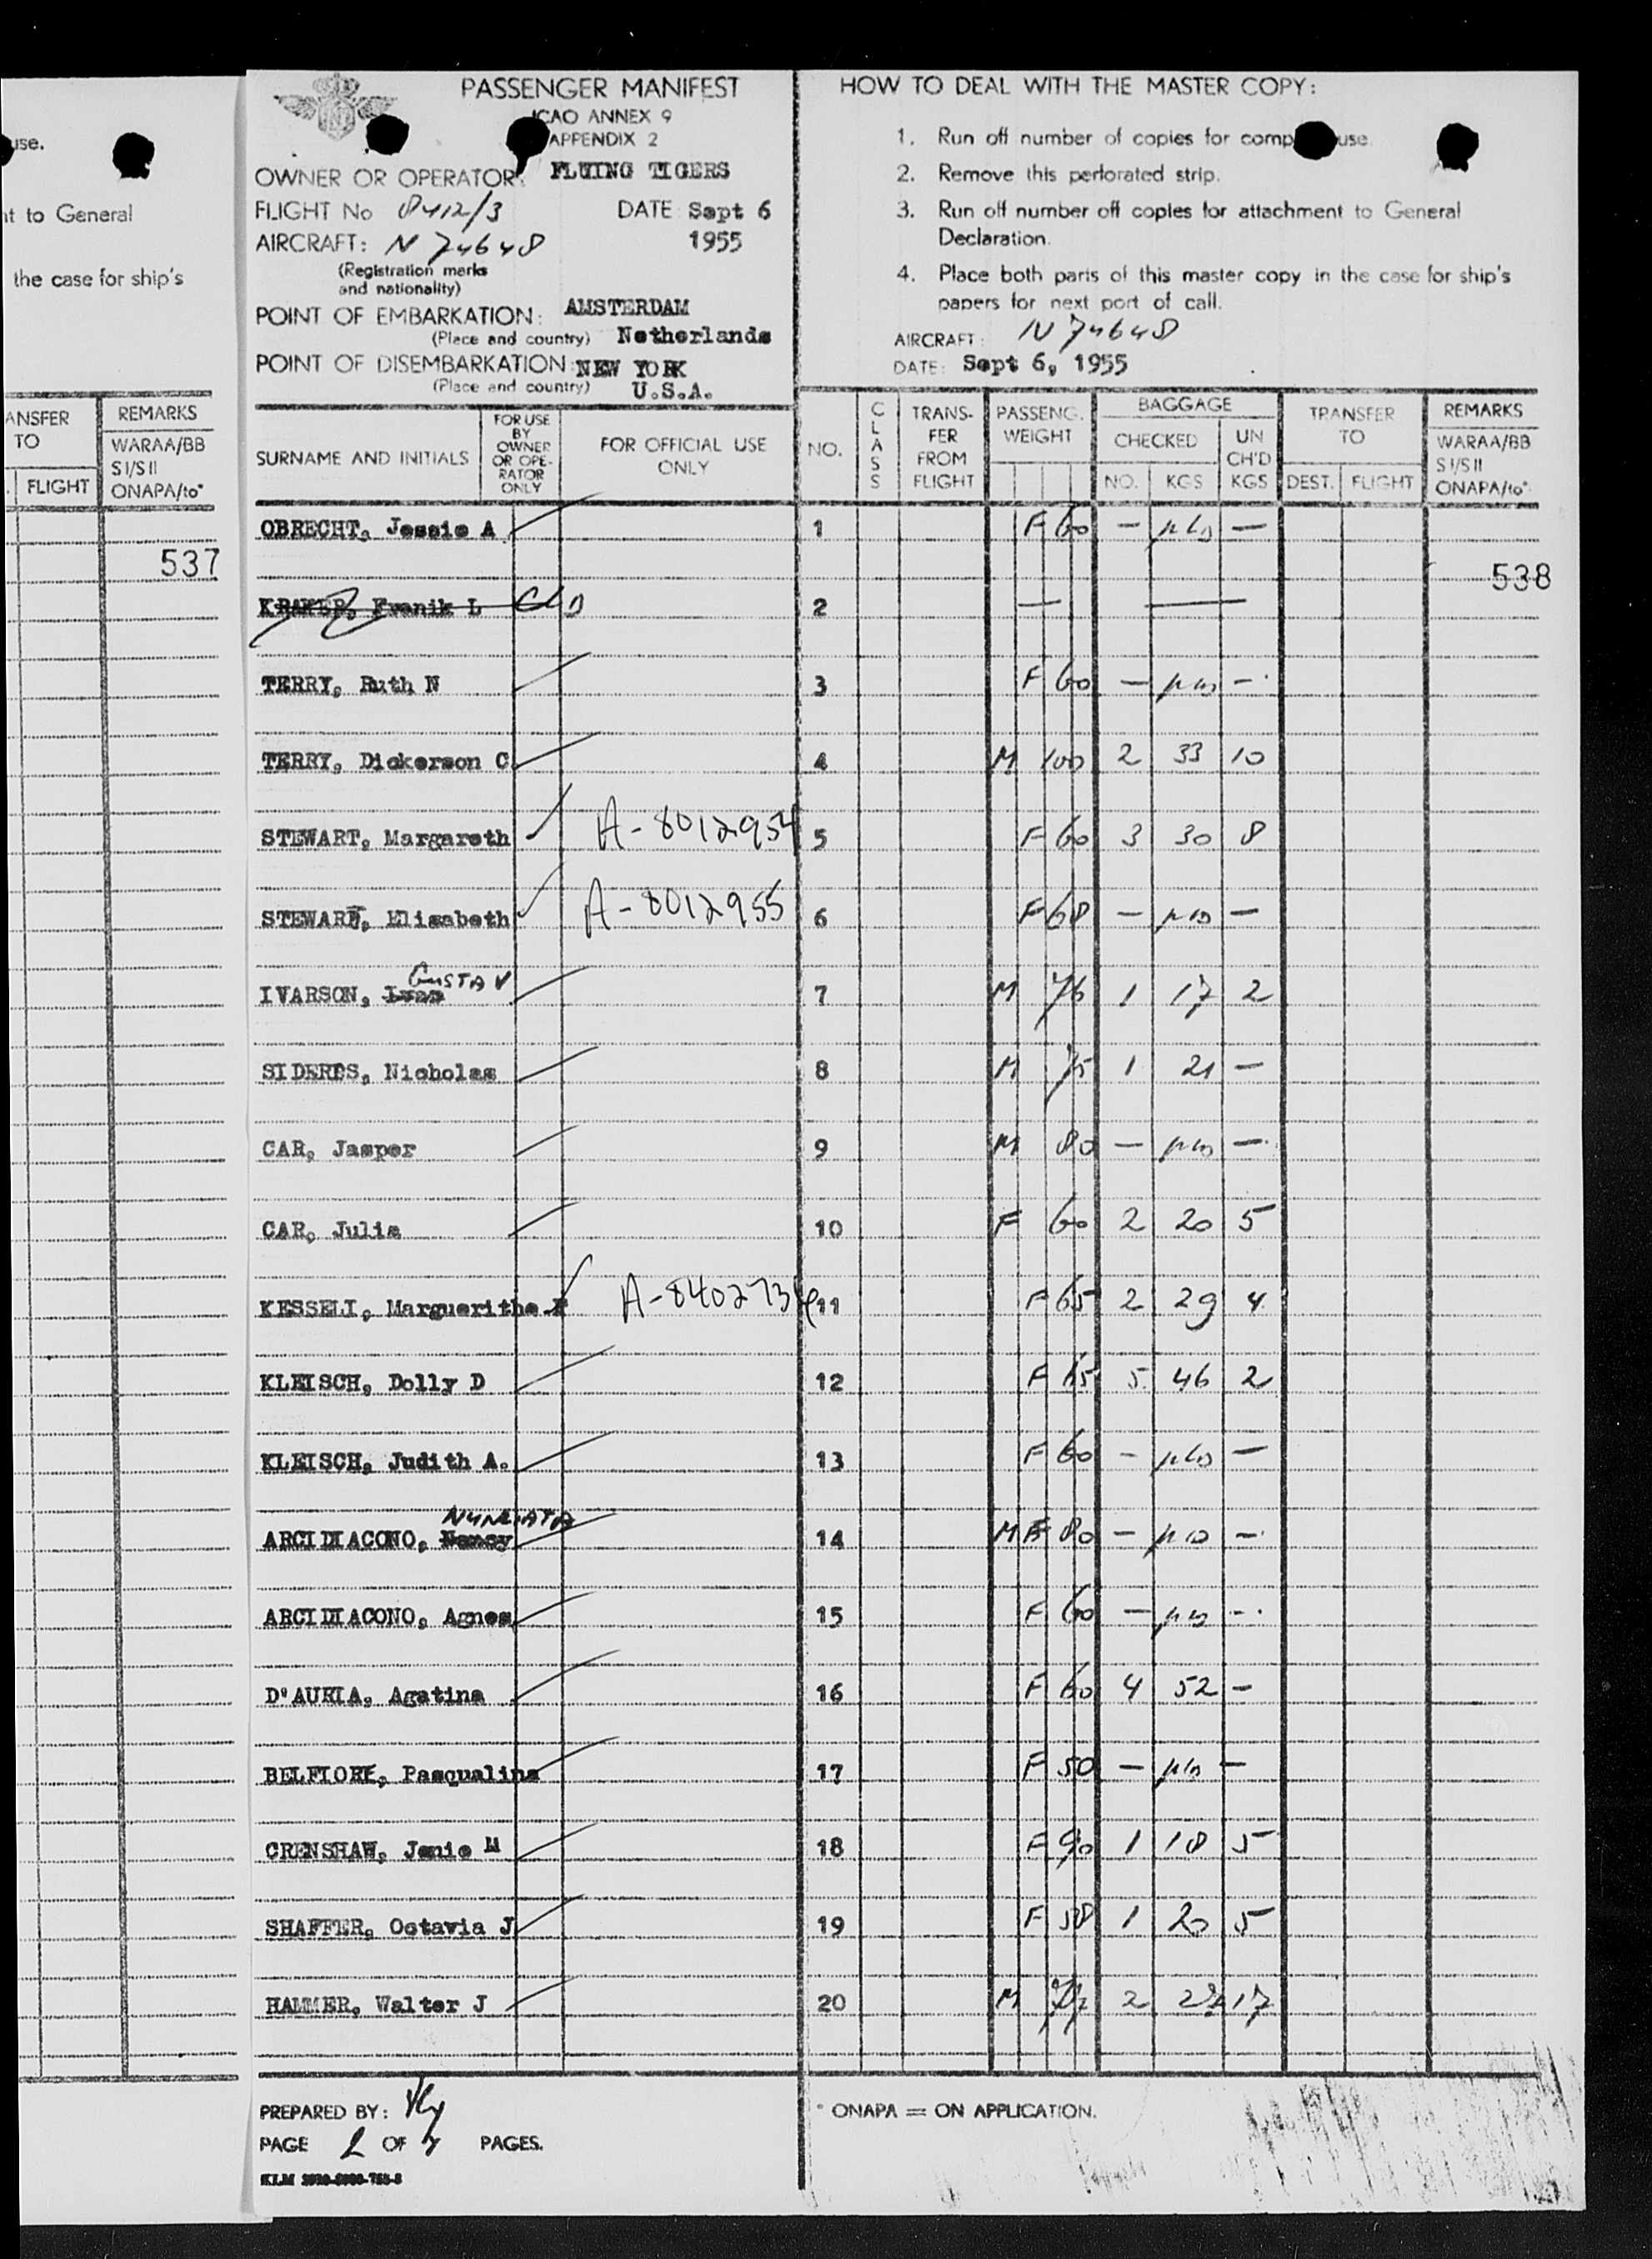 use.
nt to General
the case for ship's
ANSFER TO
FLIGHT
REMARKS
WARAA/BB
SI/SII
ONAPA/to*
537
PASSENGER MANIFEST
ICAO ANNEX 9
APPENDIX 2
OWNER OR OPERATOR: FLYING TIGERS
FLIGHT No 8412/3 DATE: Sept 6
AIRCRAFT: N 74648 1955
(Registration marks
and nationality)
POINT OF EMBARKATION: AMSTERDAM
(Place and country) Netherlands
POINT OF DISEMBARKATION: NEW YORK
(Place and country) U.S.A.
HOW TO DEAL WITH THE MASTER COPY:
1. Run off number of copies for comp use.
2. Remove this perforated strip.
3. Run off number off copies for attachment to General
Declaration.
4. Place both parts of this master copy in the case for ship's
papers for next port of call.
AIRCRAFT: N 74648
DATE: Sept 6, 1955
SURNAME AND INITIALS
FOR USE BY OWNER OR OPE-RATOR ONLY
FOR OFFICIAL USE ONLY
NO.
CLASS
TRANS-FER FROM FLIGHT
PASSENG. WEIGHT
BAGGAGE
CHECKED
NO. KGS
UN CH'D KGS
TRANSFER TO
DEST. FLIGHT
REMARKS
WARAA/BB
SI/SII
ONAPA/to*
538
OBRECHT, Jessie A 1 F 60 — —
KRAKER, Franik L 2 — —
TERRY, Ruth N 3 F 60 — —
TERRY, Dickerson C 4 M 100 2 33 10
STEWART, Margareth A-8012954 5 F 60 3 30 8
STEWART, Elisabeth A-8012955 6 F 68 — —
GUSTAV
IVARSON, Ivan 7 M 76 1 17 2
SIDERES, Nicholas 8 M 75 1 21 —
CAR, Jasper 9 M 80 — —
CAR, Julia 10 F 60 2 20 5
KESSELI, Marguerithe F A-8402734 11 F 65 2 29 4
KLEISCH, Dolly D 12 F 65 5 46 2
KLEISCH, Judith A. 13 F 60 — —
NUNCIATA
ARCIDIACONO, Nancy 14 M F 80 — —
ARCIDIACONO, Agnes 15 F 60 — —
D'AURIA, Agatina 16 F 60 4 52 —
BELFIORE, Pasqualina 17 F 50 — —
CRENSHAW, Janie M 18 F 90 1 18 5
SHAFFER, Octavia J 19 F 58 1 20 5
HAMMER, Walter J 20 M 77 2 17
PREPARED BY:
PAGE 2 OF 4 PAGES.
* ONAPA = ON APPLICATION.
KLM